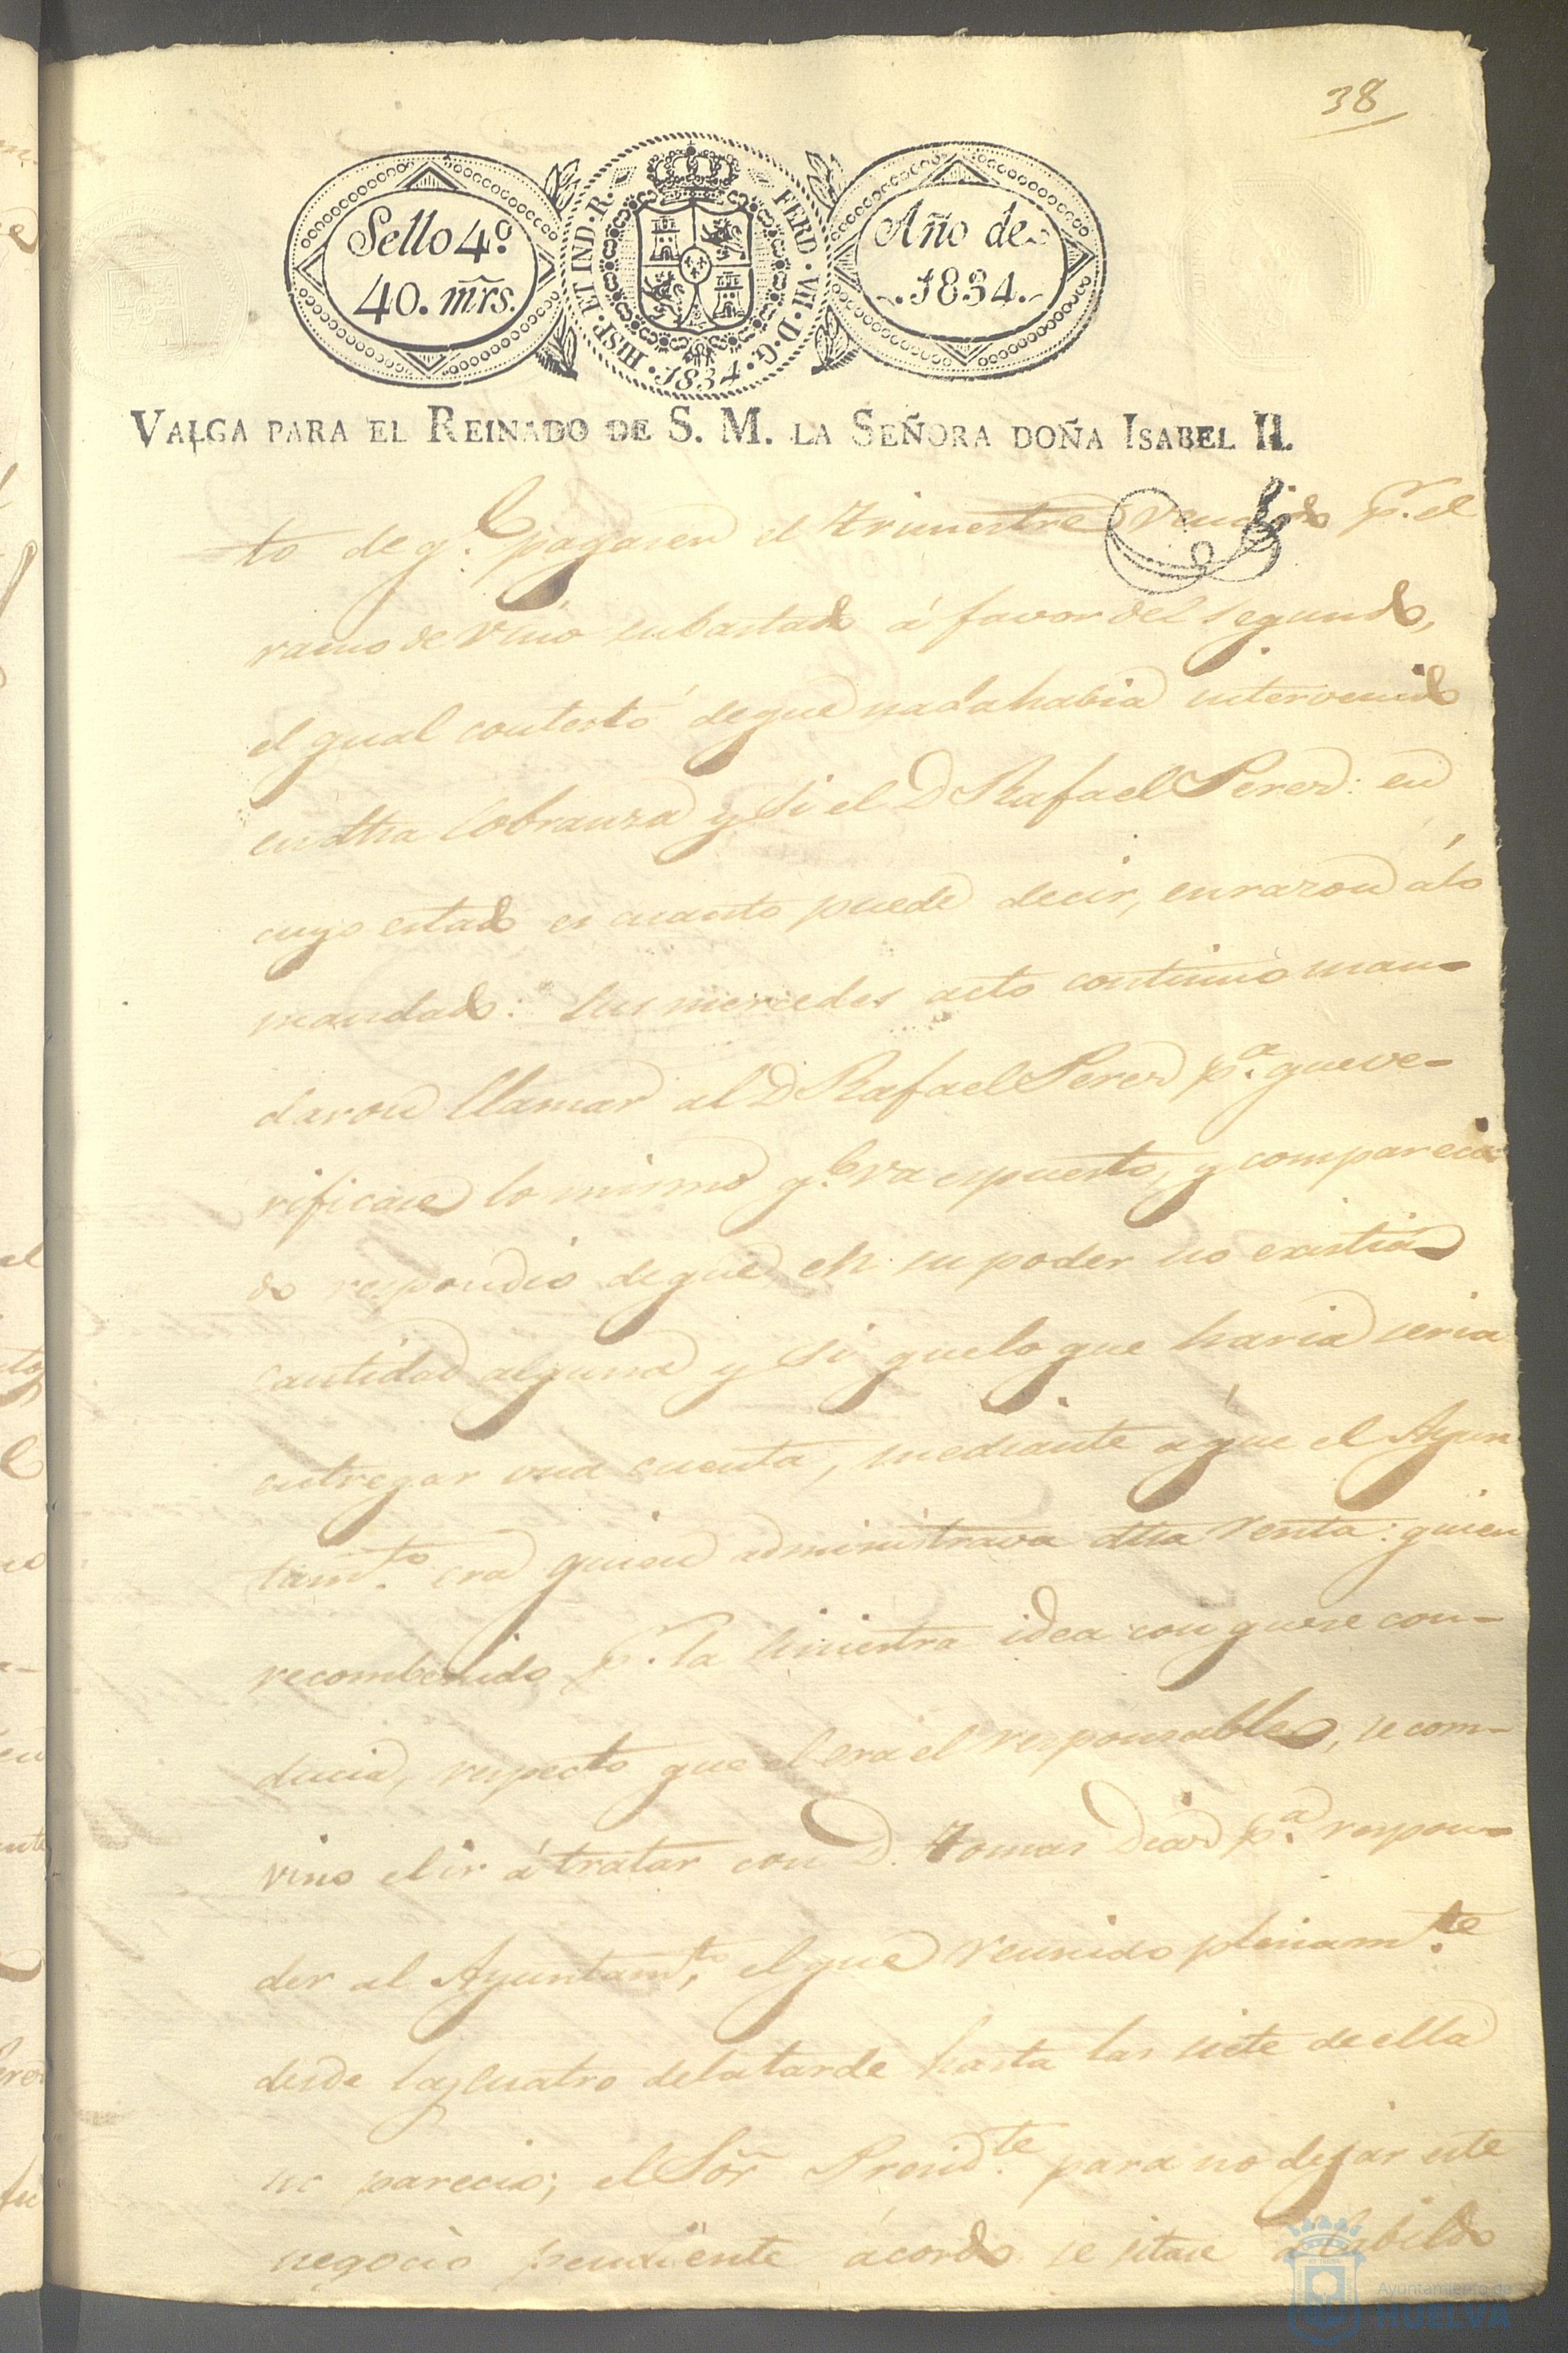 38
Sello 4º
40. mrs.
HISP. ET IND. R. FERD. VII. D. G. 1834.
Año de
1834.
VALGA PARA EL REINADO DE S. M. LA SEÑORA DOÑA ISABEL II.
to de q.e pagasen el trimestre vencido p.r el
ramo de vino subastado á favor del segundo,
el qual contestó de que nada habia intervenido
en dha cobranza y si el D Rafael Perez: en
cuyo estado es cuanto puede decir, en razon á lo
mandado: sus mercedes acto continuo man-
daron llamar al D Rafael Perez p.a que ve-
rificase lo mismo q.e va espuesto, y comparecien
do respondió de que en su poder no existia
cantidad alguna y si que lo que haria seria
entregar una cuenta, mediante á que el Ayun
tam.to era quien administrava dha renta: quien
recombenido p.r la siniestra idea con que se con-
ducia, respecto que el era el responsable, se com-
vino el ir á tratar con D. Tomas Diaz p.a respon-
der al Ayuntam.to, el que reunido plenam.te
desde las cuatro de la tarde hasta las siete de ella
no parecio; el Sor Presid.te para no dejar este
negocio pendiente ácordó se sitase á Cabildo
Ayuntamiento de
HUELVA